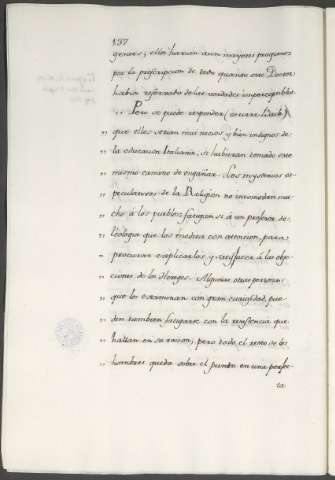 137
geners; ellos harian aun mayores progresos
por la proscripcion de todo quanto este Doctor
habia reformado de las verdades imperceptibles
,, Pero se puede responder
,, que ellos serian mui necios y bien indignos de
,, la educacion Italiana, si hubieran tomado este
,, mismo camino de engañar. Los mysterios es-
,, peculativos de la Religion no incomodan mu-
,, cho á los pueblos; fatigan si á un profesor de
,, teologia que los medita con atencion, para
,, procurar explicarlos, y satisfacer á las obje-
,, ciones de los Hereges. Algunas otras personas
,, que los examinan con gran curiosidad, pue-
,, den tambien fatigarse con la resistencia que
,, hallan en su razon; pero todo el resto de los
,, hombres queda sobre el punto en una perfec-
ta